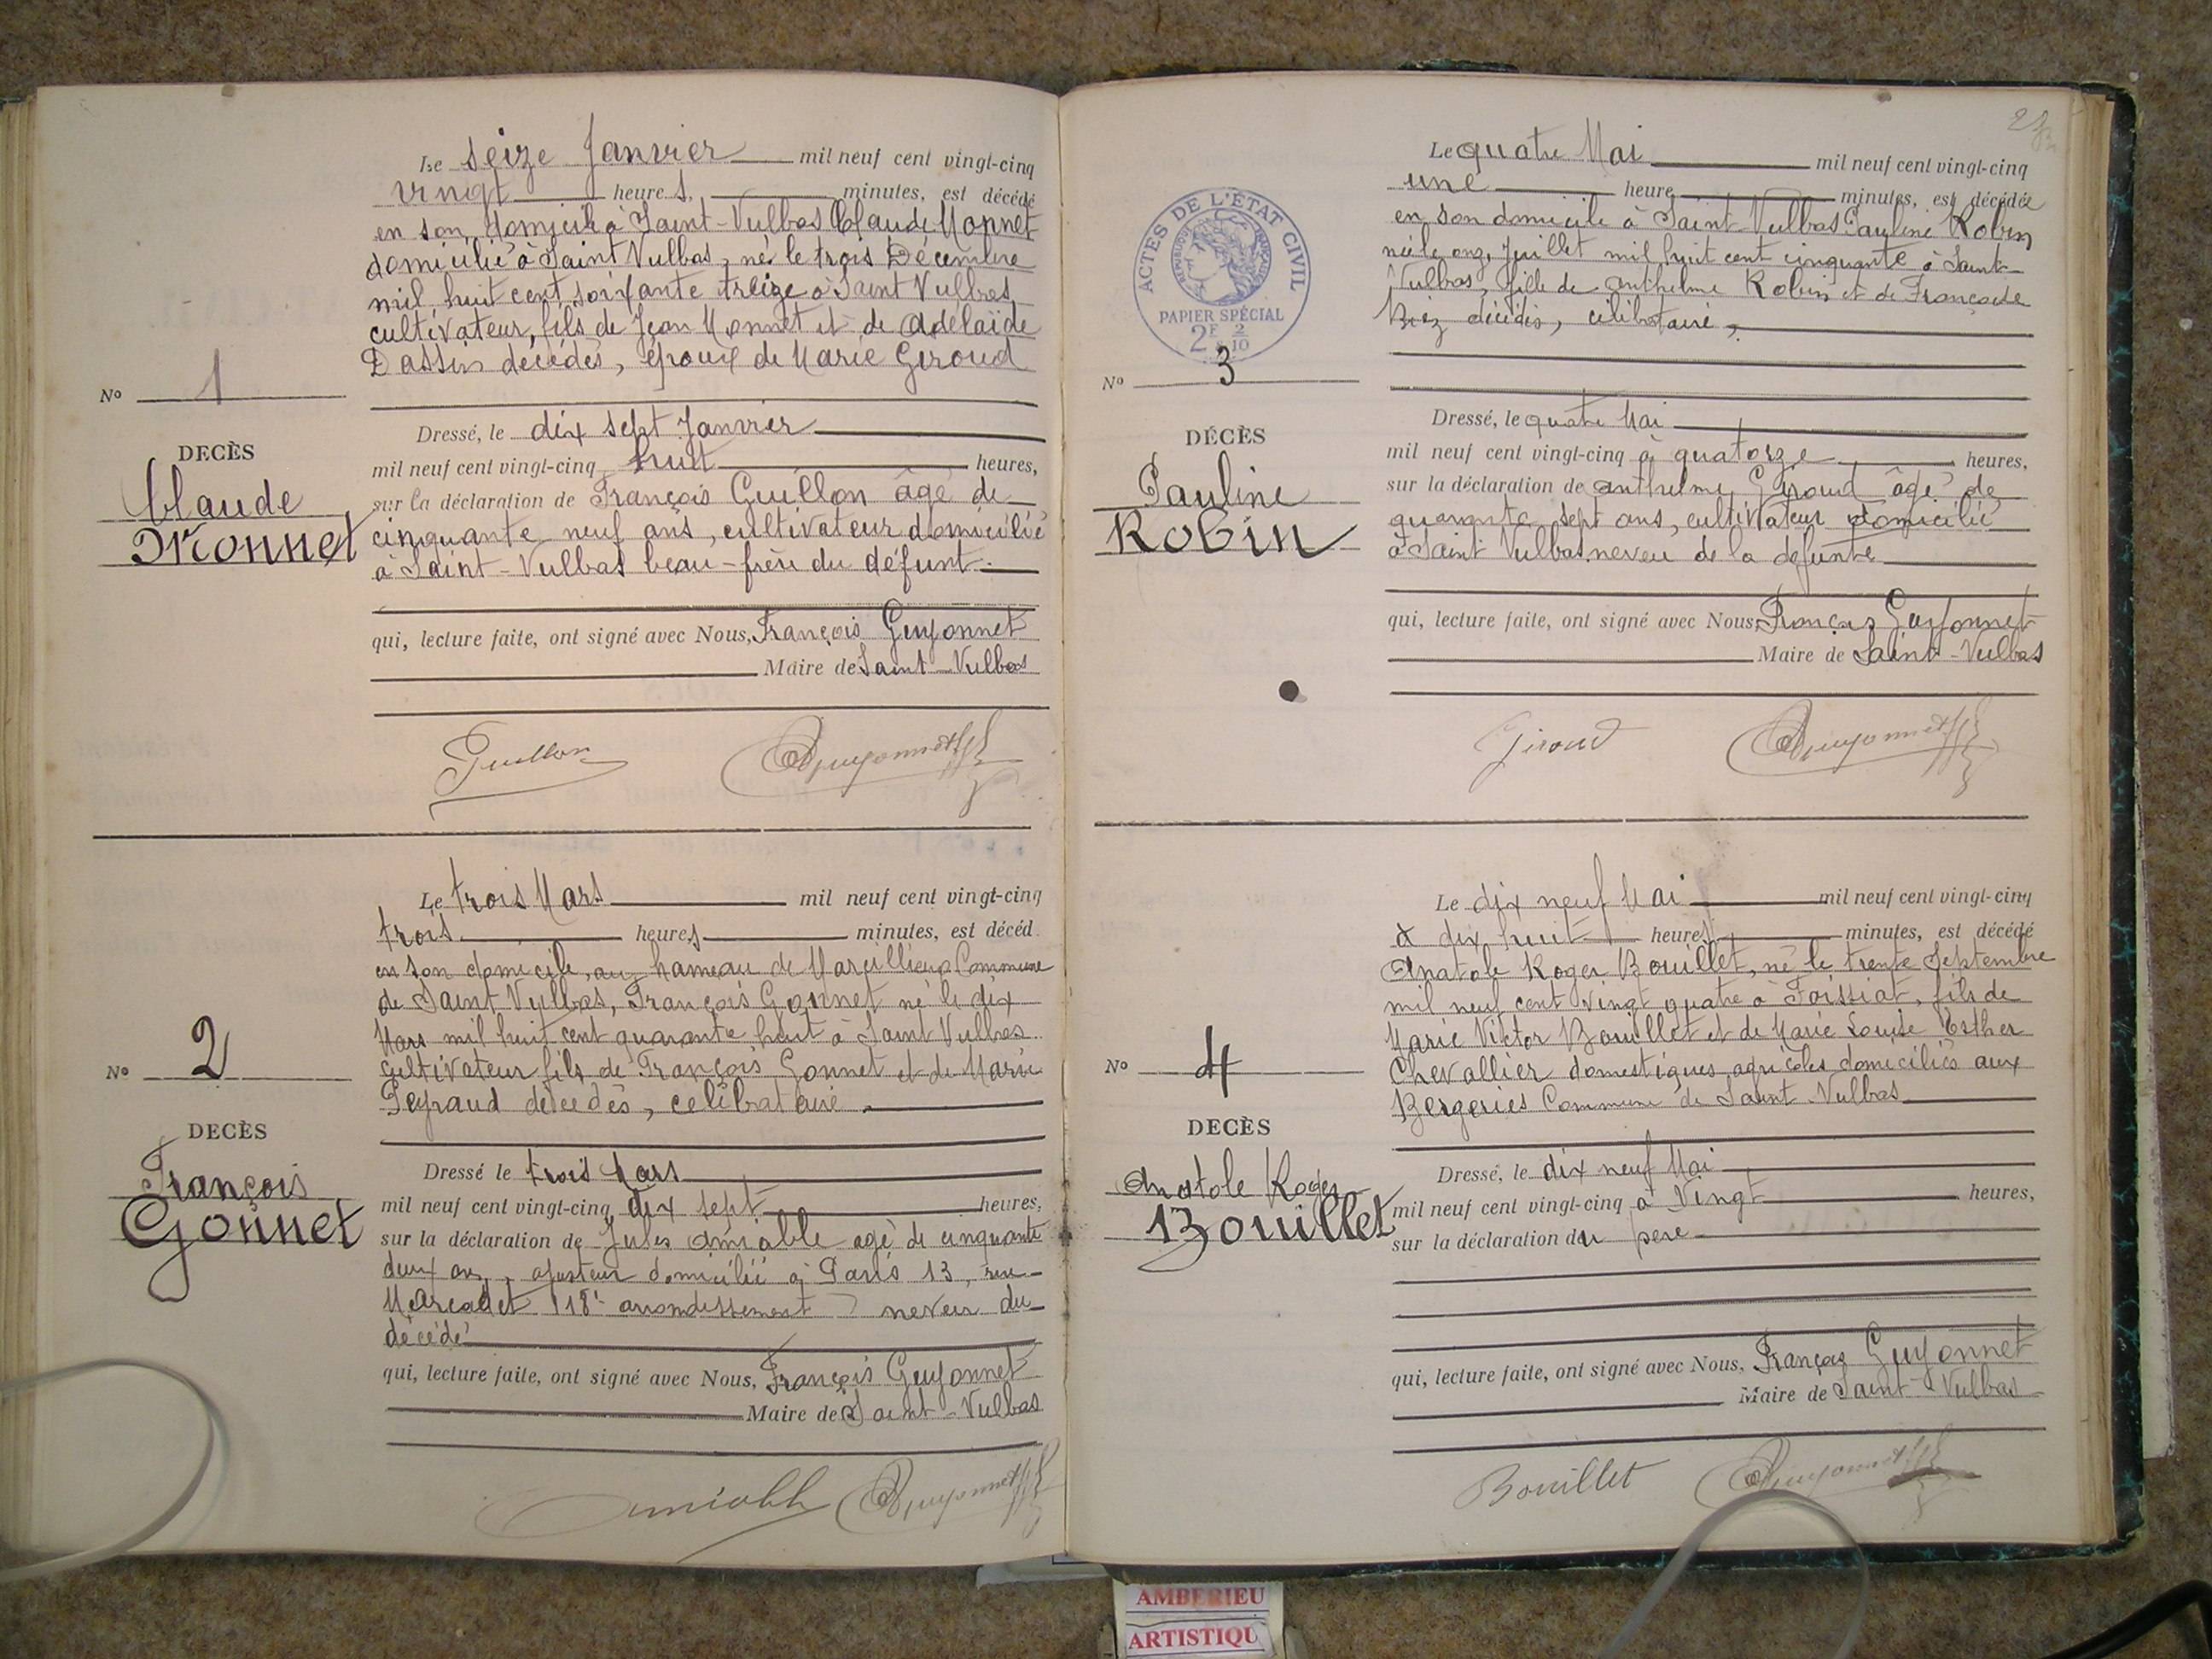 Le seize Janvier mil neuf cent vingt-cinq
vingt heures, minutes, est décédé
en son domicile à Saint-Vulbas Claude Monnet
domicilié à Saint Vulbas, né le trois Décembre
mil huit cent soixante treize à Saint Vulbas
cultivateur, fils de Jean Monnet et de Adelaïde
décédés, époux de Marie Giroud
No 1
DECÈS
Claude
Monnet
Dressé, le dix sept Janvier
mil neuf cent vingt-cinq huit heures,
sur la déclaration de François Guillon âgé de
cinquante neuf ans, cultivateur domicilié
à Saint-Vulbas beau-frère du défunt
qui, lecture faite, ont signé avec Nous, François Guyonnet
Maire de Saint-Vulbas
Guillon Guyonnet
Le trois Mars mil neuf cent vingt-cinq
trois heures minutes, est décéd
en son domicile, au hameau de Marcillieux Commune
de Saint Vulbas, François Gonnet né le dix
Mars mil huit cent quarante huit à Saint Vulbas
cultivateur fils de François Gonnet et de Marie
Peyraud décédés, célibataire.
No 2
DECÈS
François
Gonnet
Dressé le trois Mars
mil neuf cent vingt-cinq dix sept heures,
sur la déclaration de Jules Amiable agé de cinquante
deux ans, ajusteur domicilié à Paris 13, rue
Marcadet 18e arrondissement neveu du
décédé
qui, lecture faite, ont signé avec Nous, François Guyonnet
Maire de Saint-Vulbas
Amiable Guyonnet
Le quatre Mai mil neuf cent vingt-cinq
une heure minutes, est décédée
en son domicile à Saint-Vulbas Pauline Robin
née le onze Juillet mil huit cent cinquante à Saint-
Vulbas, fille de Anthelme Robin et de Françoise
décédés, célibataire,
ACTES DE L'ÉTAT CIVIL
RÉPUBLIQUE FRANÇAISE
PAPIER SPÉCIAL
2F 2/10
No 3
DÉCÈS
Pauline
Robin
Dressé, le quatre Mai
mil neuf cent vingt-cinq à quatorze heures,
sur la déclaration de Anthelme Giroud âgé de
quarante sept ans, cultivateur domicilié
à Saint Vulbas neveu de la defunte
qui, lecture faite, ont signé avec Nous, François Guyonnet
Maire de Saint-Vulbas
Giroud Guyonnet
Le dix neuf Mai mil neuf cent vingt-cinq
à dix huit heures minutes, est décédé
Anatole Roger Bouillet, né le trente Septembre
mil neuf cent vingt quatre à Foissiat, fils de
Marie Victor Bouillet et de Marie Louise Esther
Chevallier domestiques agricoles domiciliés aux
Bergeries Commune de Saint-Vulbas
No 4
DECÈS
Anatole Roger
Bouillet
Dressé, le dix neuf Mai
mil neuf cent vingt-cinq à Vingt heures,
sur la déclaration du père
qui, lecture faite, ont signé avec Nous, François Guyonnet
Maire de Saint-Vulbas
Bouillet Guyonnet
AMBERIEU
ARTISTIQU